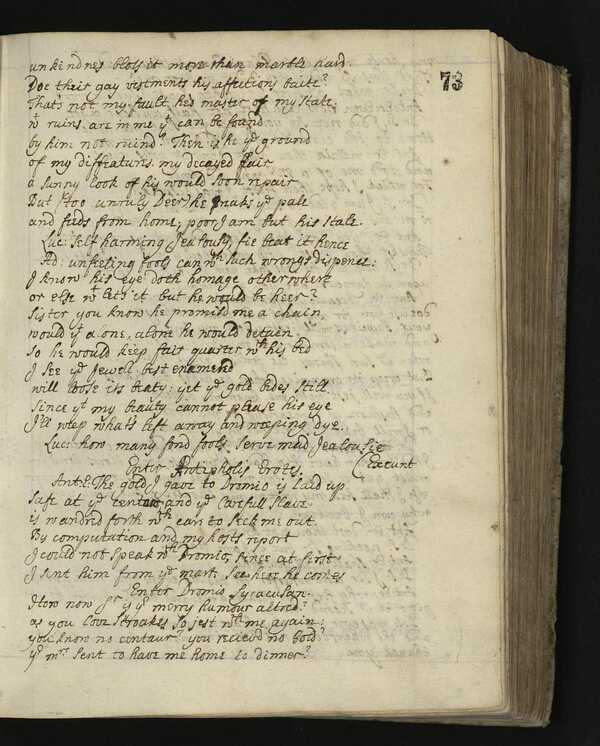 73
unkindnes blots it more than marble hard.
Doe their gay vestments his affections baite?
Thats not my fault, hes master of my State:
wt ruins are in me yt can be found
by him not ruind? Then is he ye ground
of my diffeatures. my decayed fair
a sunny look of his would soon repair
But (too unruly Deer) he breaks ye pale
and feeds from home; poor I am but his Stale.
Luc: Self harming Jealousy, fie beat it hence
Ad: unfeeling fools can wth such wrongs dispence:
I know his eye doth homage other where
or else wt lets it but he would be heer?
Sister you know he promisd me a chain,
would yt alone, alone he would detain,
so he would keep fair quarter wth his bed
I see ye Jewell best enameld
will loose its beaty; yet ye gold bides still
Since yt my beauty cannot please his eye
I'll weep what's left away and weeping dye.
Luc: how many fond fools serve mad Jealousie
Exeunt
Enter Antipholis Erotes.
Ant:E: The gold I gave to Dromio is laid up
safe at ye centaur and ye Carefull slave
is wandred forth wth care to seek me out.
By computation and my hosts report
I could not speak wth Dromio, since at first
I sent him from ye mart: see heer he comes
Enter Dromio Syracusan.
How now Sr is yr merry humour altred?
as you love stroakes so jest wth me again:
you know no centaur? you recievd no Gold?
yr mrs sent to have me home to dinner?